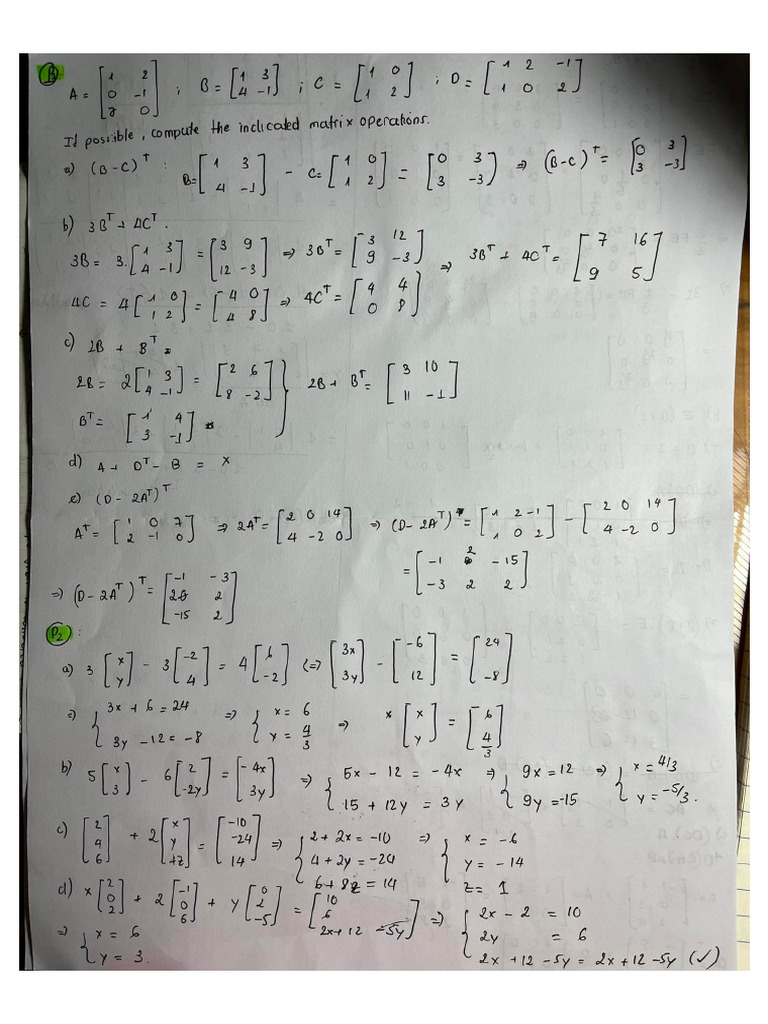 P1:
A = [1 2; 0 -1; 7 0] ; B = [1 3; 4 -1] ; C = [1 0; 1 2] ; D = [1 2 -1; 1 0 2]
If possible, compute the indicated matrix operations.
a) (B-C)^T : B = [1 3; 4 -1] - C = [1 0; 1 2] = [0 3; 3 -3] ⇒ (B-C)^T = [0 3; 3 -3]
b) 3B^T + 4C^T.
3B = 3.[1 3; 4 -1] = [3 9; 12 -3] ⇒ 3B^T = [3 12; 9 -3]
⇒ 3B^T + 4C^T = [7 16; 9 5]
4C = 4[1 0; 1 2] = [4 0; 4 8] ⇒ 4C^T = [4 4; 0 8]
c) 2B + B^T =
2B = 2[1 3; 4 -1] = [2 6; 8 -2] } 2B + B^T = [3 10; 11 -1]
B^T = [1 4; 3 -1]
d) A + D^T - B = x
e) (D - 2A^T)^T
A^T = [1 0 7; 2 -1 0] ⇒ 2A^T = [2 0 14; 4 -2 0] ⇒ (D - 2A^T) = [1 2 -1; 1 0 2] - [2 0 14; 4 -2 0]
= [-1 2 -15; -3 2 2]
⇒ (D - 2A^T)^T = [-1 -3; 2 2; -15 2]
P2:
a) 3[x; y] - 3[-2; 4] = 4[6; -2] (⇒ [3x; 3y] - [-6; 12] = [24; -8]
⇒ { 3x + 6 = 24; 3y - 12 = -8 ⇒ { x = 6; y = 4/3 ⇒ * [x; y] = [6; 4/3]
b) 5[x; 3] - 6[2; -2y] = [-4x; 3y] ⇒ { 5x - 12 = -4x; 15 + 12y = 3y ⇒ { 9x = 12; 9y = -15 ⇒ { x = 4/3; y = -5/3.
c) [2; 4; 6] + 2[x; y; 4z] = [-10; -24; 14] ⇒ { 2 + 2x = -10; 4 + 2y = -24; 6 + 8z = 14 ⇒ { x = -6; y = -14; z = 1
d) x[2; 0; 2] + 2[-1; 0; 6] + y[0; 2; -5] = [10; 6; 2x + 12 - 5y] ⇒ { 2x - 2 = 10; 2y = 6; 2x + 12 - 5y = 2x + 12 - 5y (✓)
⇒ { x = 6; y = 3.